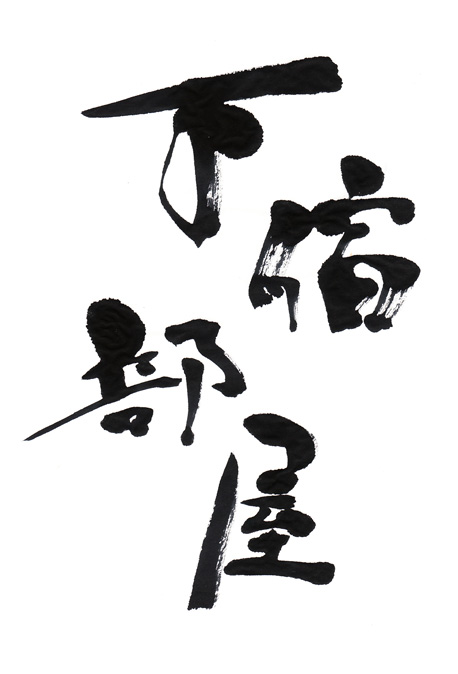 下宿部屋